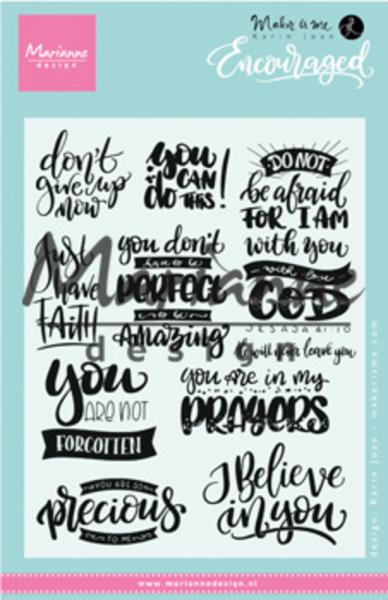 Marianne
design
Maker is me
Karin Joan
Encouraged
don't
give up
now
you
CAN
do THIS!
DO NOT
be afraid
FOR I AM
with you
with love
GOD
JESAJA 41:10
He will never leave you
Just
have
FAITH
you don't
have to be
PERFECT
to be
Amazing
Marianne
design
you
ARE NOT
FORGOTTEN
you are in my
PRAYERS
YOU ARE SO
precious
TO ME
I Believe
in you
design: Karin Joan - makerisme.com
www.mariannedesign.nl